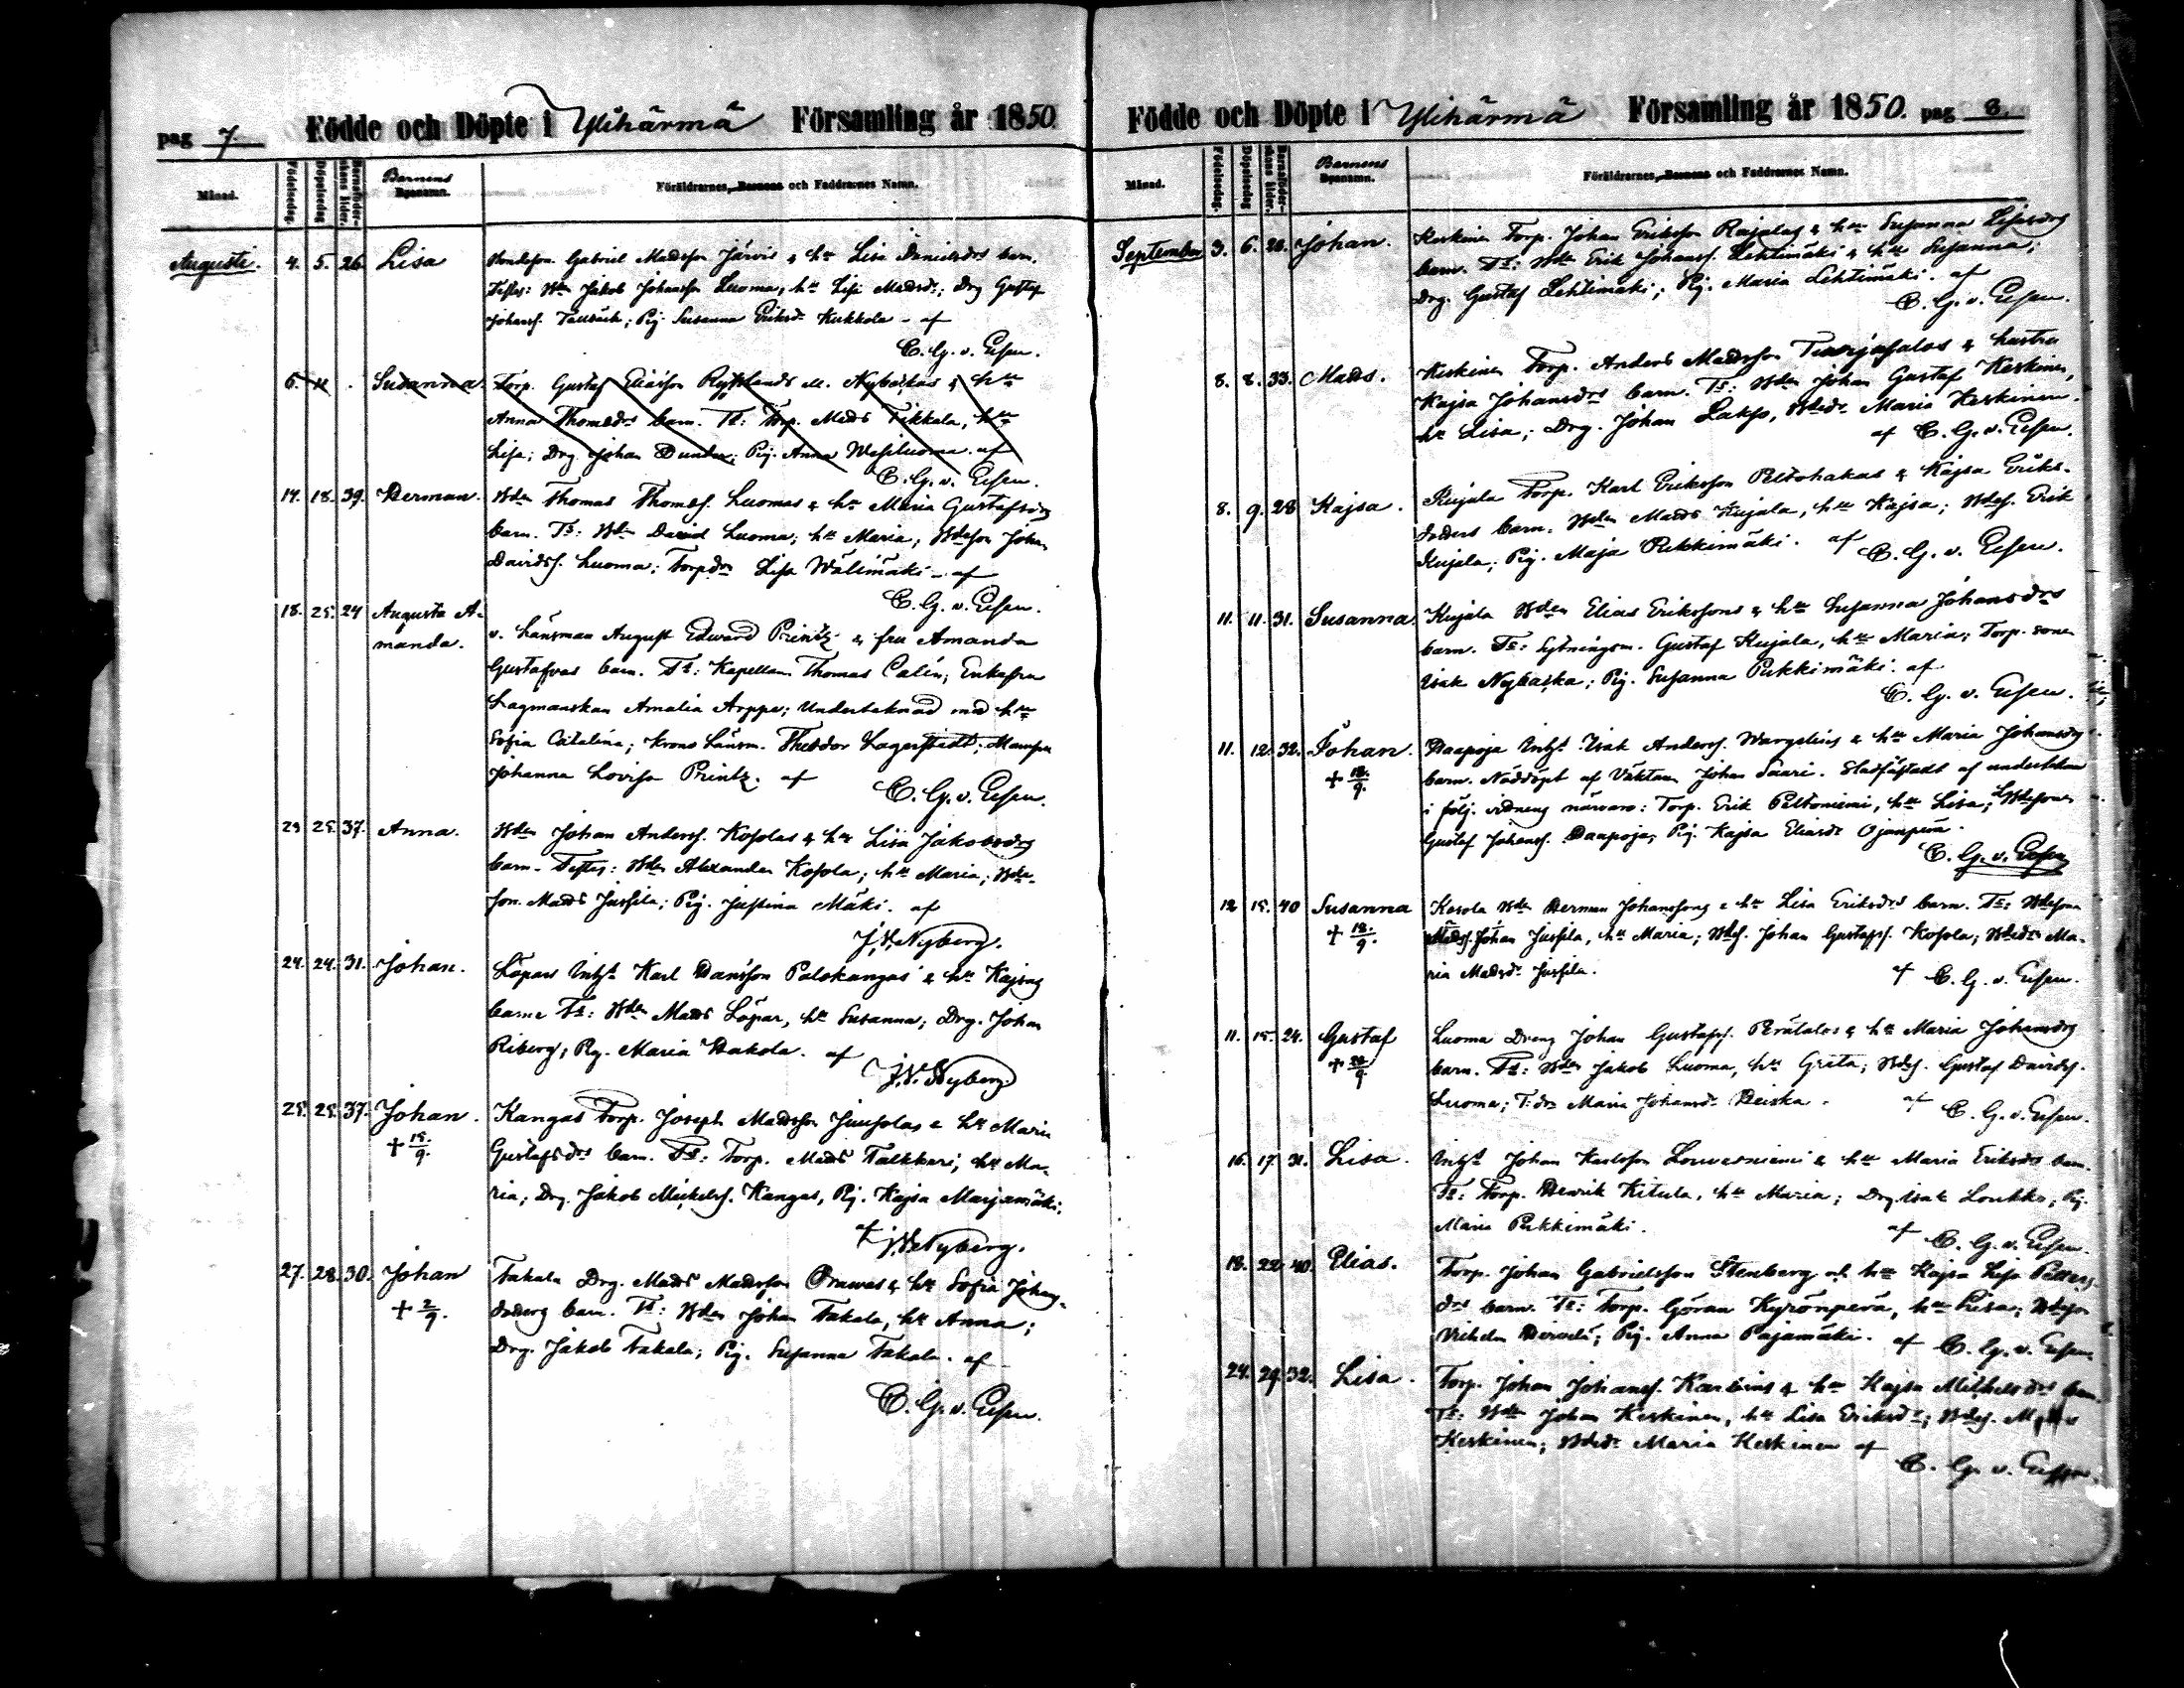 pag 7. Födde och Döpte i Ylihärmä Församling år 1850
Månad. Födelsedag. Döpelsedag Barnaföderskans ålder. Barnens Bynamn. Föräldrarnes, Barnens och Faddrarnes Namn.
Augusti. 4. 5. 26 Lisa Gabriel Madsson Järvis & hu Lisa Danielsdrs barn.
Testes: Bdn Jakob Johansson Luoma, hu Lisa Madsdr; Drg Gustaf
Johanss. Tallbäck; Pig. Susanna Eriksdr Kukkola - af
C. G. v. Essen.
6. 11 . Susanna. Torp. Gustaf Eliasson Rysslands M. Nybackas & hu
Anna Thomasdrs barn. Ts: Torp. Mads Tikkala, hu
Lisa; Drg Johan Dunder; Pig. Anna Wesiluoma. af
C. G. v. Essen.
14. 18. 39. Herman. Bdn Thomas Thomass. Luomas & hu Maria Gustafsdrs
barn. Ts: Bdn David Luoma; hu Maria; Bdeson Johan
Davidss. Luoma; Torpdr Lisa Wälimäki - af
C. G. v. Essen.
18. 25. 24 Augusta A-
manda. v. Länsman August Edward Printz & fru Amanda
Gustafvas barn. Ts: Kapellan Thomas Calén; Enkefru
Lagmanskan Amalia Arppe; Underteknad med hu
Sofia Catalina; Krono Länsm. Theodor Lagerstedt; Mamsen
Johanna Lovisa Printz. af C. G. v. Essen.
23 25. 37. Anna. Bdn Johan Anderss. Kosolas & hu Lisa Jakobsdrs
barn. Testes: Bdn Alexander Kosola; hu Maria; Bde-
son. Mads Jussila; Pig. Justina Mäki. af
J. W. Nyberg.
24. 24. 31. Johan. Löpars Inhs Karl Hansson Palokangas & hu Kajsas
barn Ts: Bdn Mads Löpar, hu Susanna; Drg. Johan
Riberg; Pig. Maria Hakola. af
J. W. Nyberg
25. 25. 37. Johan. Kangas Torp. Joseph Madsson Juusolas & hu Maria
+ 15./9. Gustafsdrs barn. Ts: Torp. Mads Talkkari; hu Ma-
ria; Drg. Jakob Mickelss. Kangas, Pig. Kajsa Marjamäki.
af J. W. Nyberg.
27. 28. 30. Johan Takala Drg. Mads Madsson Orawas & hu Sofia Johans-
+ 2/9. doters barn. Ts: Bdn Johan Takala, hu Anna;
Drg. Jakob Takala; Pig. Susanna Takala. af
C. G. v. Essen.
Födde och Döpte i Ylihärmä Församling år 1850. pag 8.
Månad. Födelsedag. Döpelsedag Barnaföderskans ålder. Barnens Bynamn. Föräldrarnes, Barnens och Faddrarnes Namn.
September 3. 6. 26. Johan. Keskinen Torp. Johan Eriksson Rajalas & hu Susanna
barn. Ts: Bdn Erik Johanss. Lehtimäki & hu Susanna;
Drg. Gustaf Lehtimäki; Pig. Maria Lehtimäki. af
C. G. v. Essen.
8. 8. 33. Mads. Keskinen Torp. Anders Madsson & hustru
Kajsa Johansdrs barn. Ts: Bdn Johan Gustaf Keskinen,
hu Lisa; Drg. Johan Lakso, Bdedr Maria Keskinen.
af C. G. v. Essen.
8. 9. 28 Kajsa. Kujala Torp. Karl Eriksson Peltohakas & Kajsa Eriks-
doters barn. Bdn Mads Kujala, hu Kajsa; Bdes. Erik
Kujala; Pig. Maja Pukkimäki. af C. G. v. Essen.
11. 11. 31. Susanna Kujala Bden Elias Erikssons & hu Susanna Johansdrs
barn. Ts: Sytningsm. Gustaf Kujala, hu Maria; Torp. sonen
Isak Nybacka; Pig. Susanna Pukkimäki. af
C. G. v. Essen.
11. 12. 32. Johan. Haapoja Inhs Isak Anderss. Wargelius & hu Maria Johansdrs
+ 18./9. barn. Nöddöpt af Väktaren Johan Saari. Stadfästadt af underteknad
i följ. vidnens närvaro: Torp. Erik Peltoniemi, hu Lisa; Bdesonen
Gustaf Johanss. Haapoja; Pig. Kajsa Eliasdr Ojanperä.
C. G. v. Essen
12 15. 40 Susanna Kosola Bdn Herman Johanssons & hu Lisa Eriksdrs barn. Ts: Bdeson
+ 18./9. Johan Jussila, hu Maria; Bdes. Johan Gustafss. Kosola; Bdedr Ma-
ria Madsdr Jussila. af C. G. v. Essen.
11. 15. 24. Gustaf Luoma Dreng Johan Gustafss. Perätalos & hu Maria Johansdrs
+ 20/9 barn. Ts: Bdn Jakob Luoma, hu Greta; Bdes. Gustaf Davidss.
Luoma; T:dr Maria Johansdr Heiska. af C. G. v. Essen.
16. 17. 31. Lisa. Inhs Johan Karlsson Louvesniemi & hu Maria Eriksdrs barn.
Ts: Torp. Henrik Kitula, hu Maria; Drg Isak Loukko; Pig.
Maria Pukkimäki. af C. G. v. Essen.
18. 22. 40. Elias. Torp. Johan Gabrielsson Stenberg och hu Kajsa Lisa Petters-
drs barn. Ts: Torp. Göran Kyrönperä, hu Lisa; Bdeson
Vilhelm; Pig. Anna Pajamäki. af C. G. v. Essen.
24. 29. 32. Lisa. Torp. Johan Johanss. & hu Kajsa Mikkelsdrs barn.
Ts: Bdn Johan Keskinen, hu Lisa Eriksdr; Bdes.
Keskinen; Bdedr Maria Keskinen af
C. G. v. Essen.